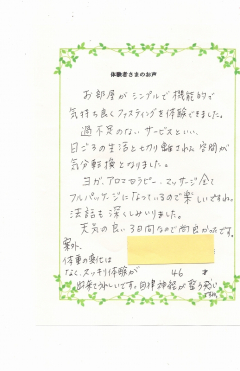 体験者さまのお声
お部屋がシンプルで機能的で
気持ち良くファスティングを体験できました。
過不足のないサービスといい、
日ごろの生活と切り離された空間が
気分転換となりました。
ヨガ、アロマセラピー、マッサージ全て
フルパッケージになっているので楽しいですね。
法話も深くしみいりました。
天気の良い3日間なので間良かったです。
案外、
体重の変化は
なく、スッキリ体験が 46 才
出来てうれしいです。自律神経が整う感じ
ですね